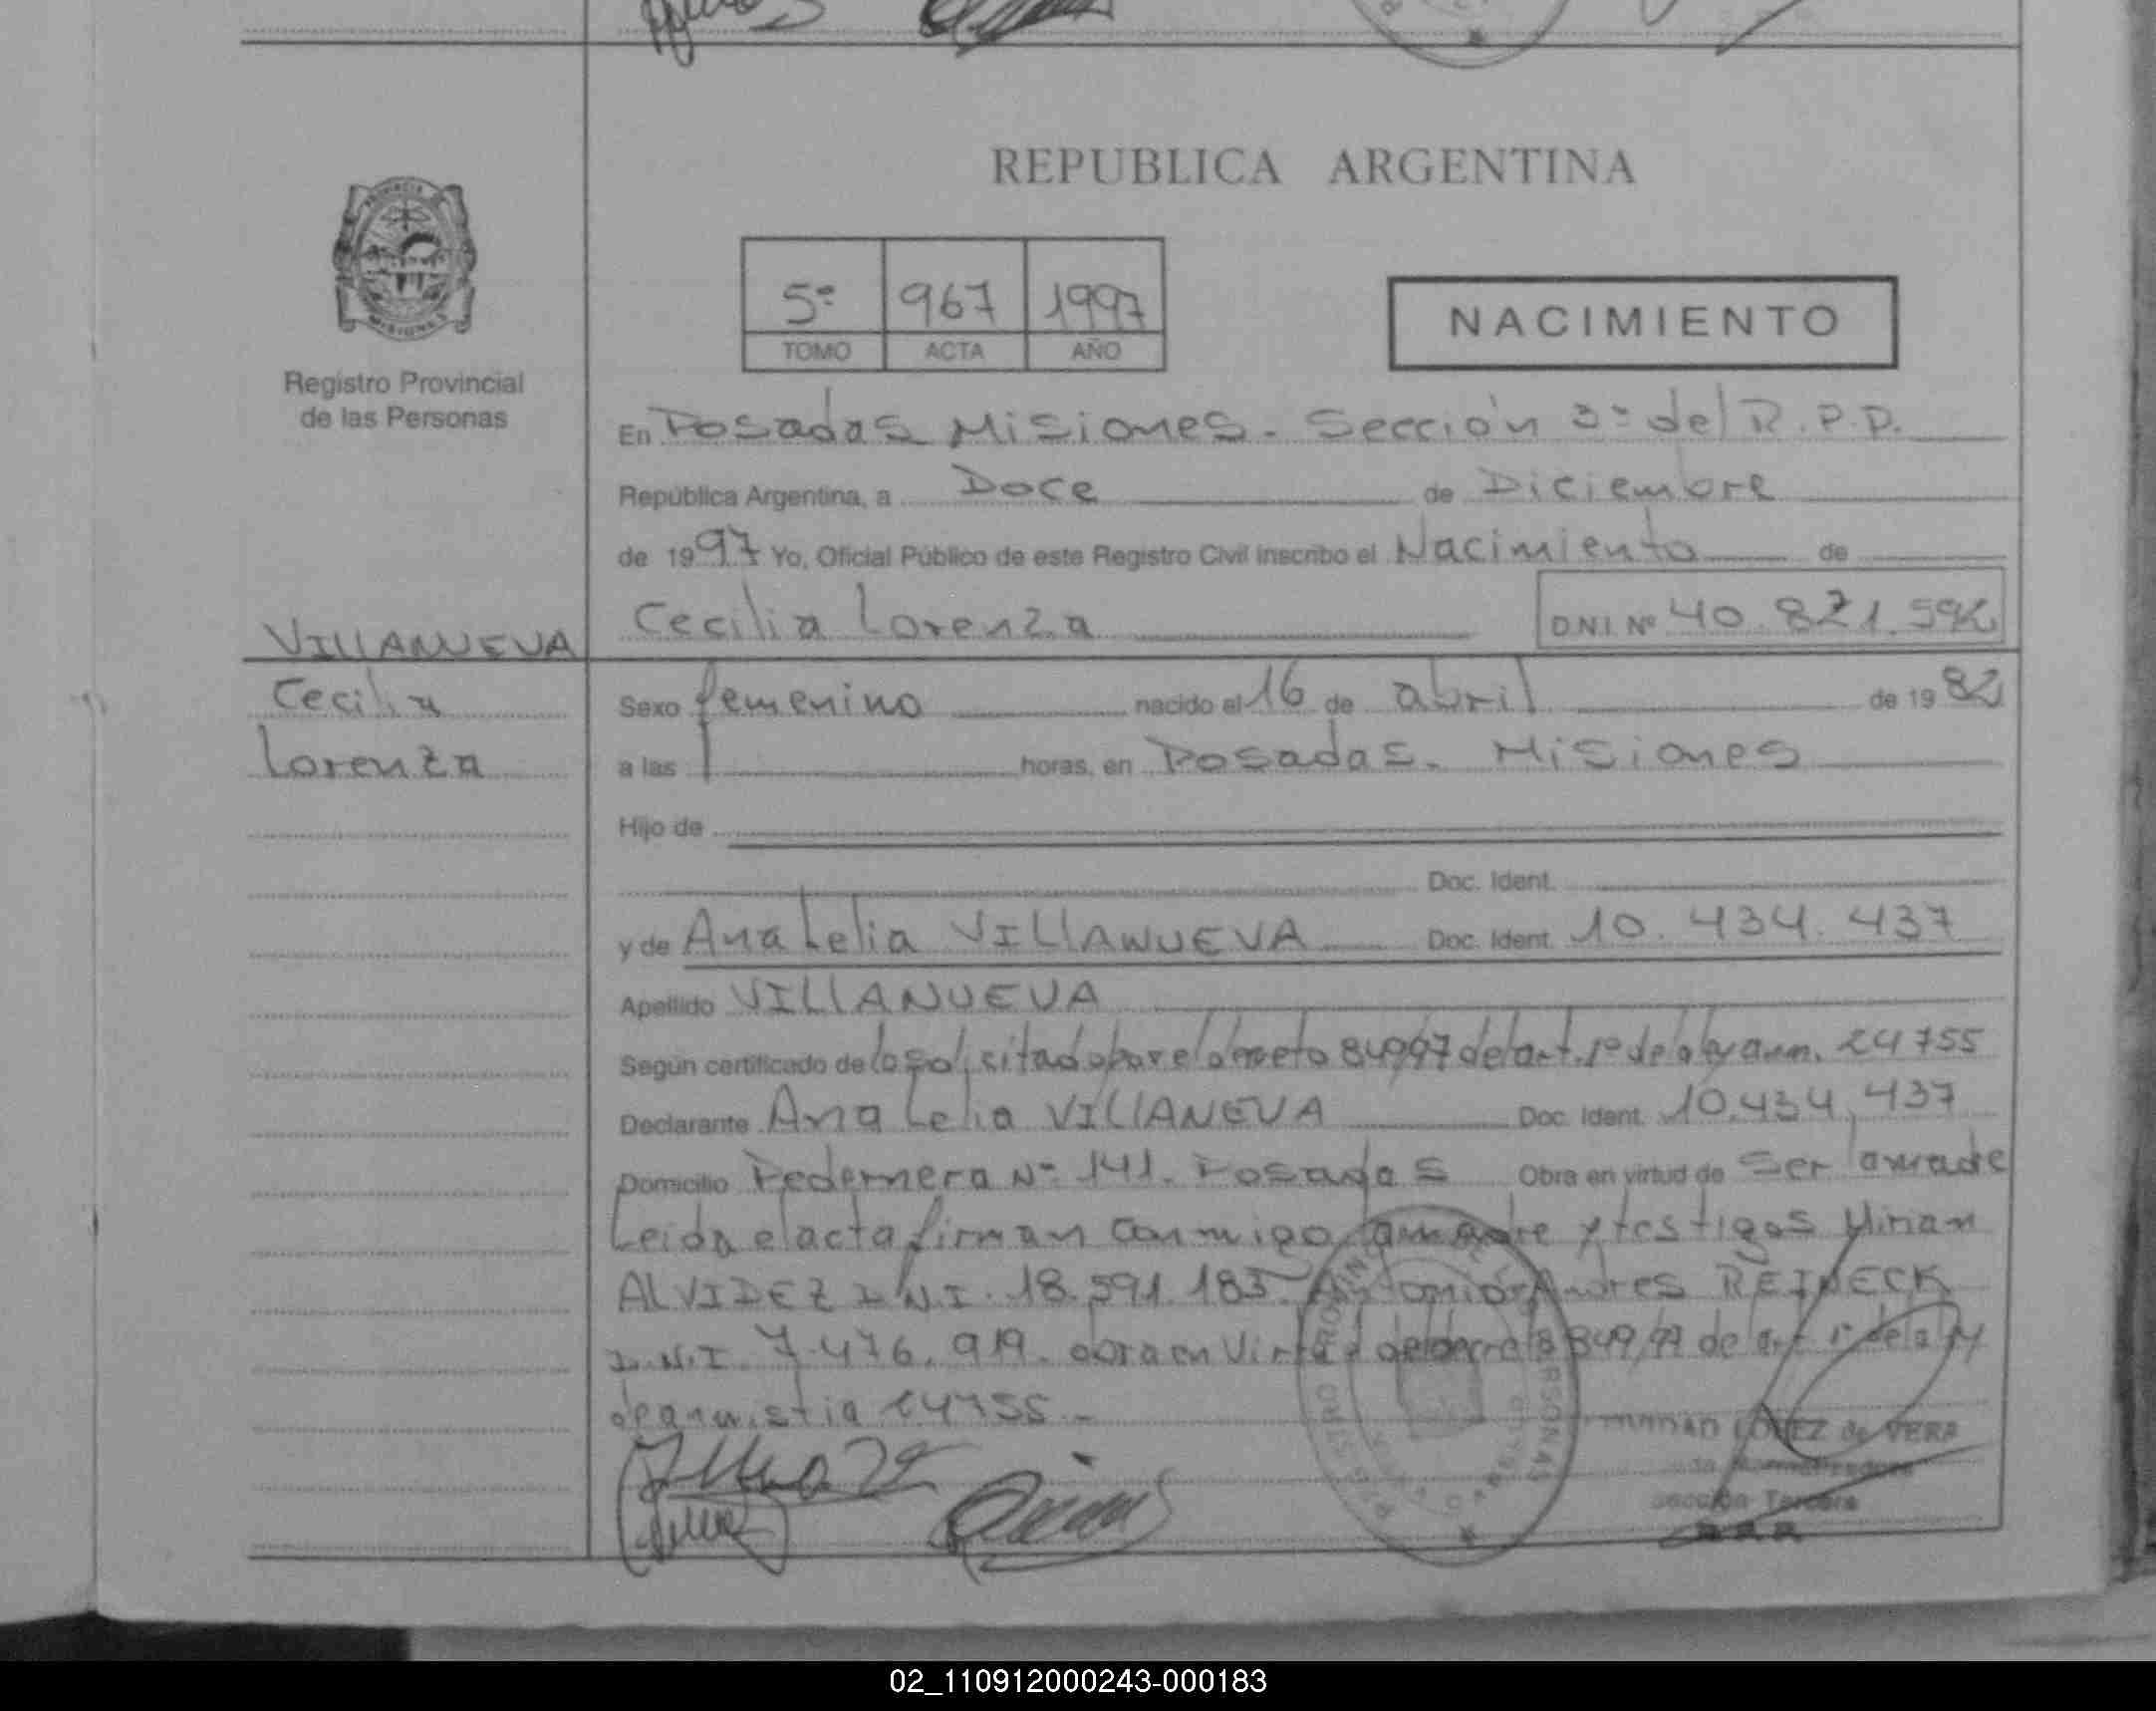 REPUBLICA ARGENTINA
5º 967 1997
TOMO ACTA AÑO
NACIMIENTO
Registro Provincial
de las Personas
En Posadas Misiones. Sección 3º del R.P.P.
República Argentina, a Doce de Diciembre
de 1997 Yo, Oficial Público de este Registro Civil inscribo el Nacimiento de
Cecilia Lorenza D.N.I. Nº 40.821.592
VILLANUEVA
Cecilia
Lorenza
Sexo femenino nacido el 16 de abril de 1982
a las horas, en Posadas. Misiones
Hijo de
Doc. Ident.
y de Ana Lelia VILLANUEVA Doc. Ident. 10.434.437
Apellido VILLANUEVA
Según certificado de lo solicitado por el decreto 849/97 del art. 1º de la ley 24755
Declarante Ana Lelia VILLANEVA Doc. Ident. 10.434.437
Domicilio Pedernera Nº 141. Posadas Obra en virtud de Ser la madre
Leida el acta firman conmigo la madre y testigos Mirian
ALVIDEZ D.N.I. 18.591.185 Antonio Andres REINECK
D.N.I. 7.476.919. obra en Virtud del decreto 849/97 de art 1º de la ley
de amnistia 24755.
LOPEZ de VERA
Sección Tercera
02_110912000243-000183